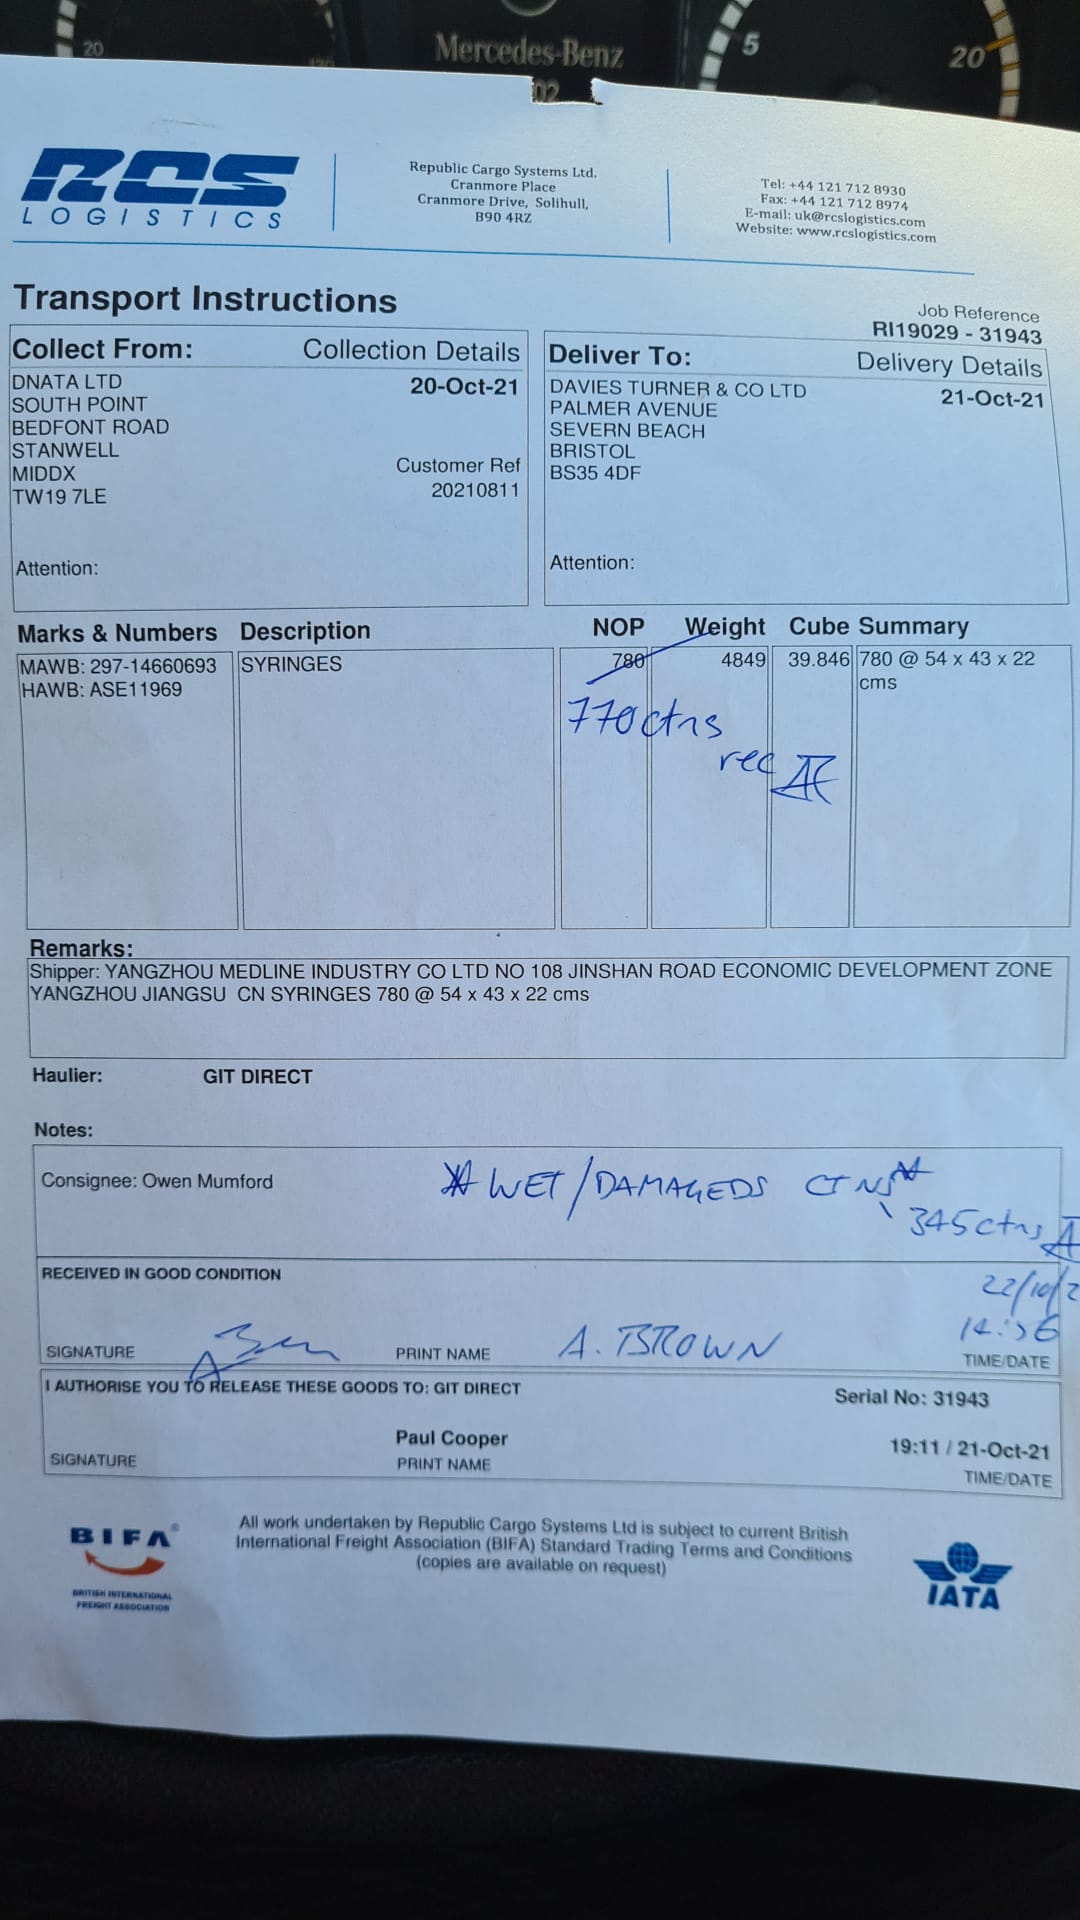 20
120
Mercedes-Benz
02
5
20
RCS
LOGISTICS
Republic Cargo Systems Ltd.
Cranmore Place
Cranmore Drive, Solihull,
B90 4RZ
Tel: +44 121 712 8930
Fax: +44 121 712 8974
E-mail: uk@rcslogistics.com
Website: www.rcslogistics.com
Transport Instructions
Job Reference
RI19029 - 31943
Collect From:
Collection Details
DNATA LTD
20-Oct-21
SOUTH POINT
BEDFONT ROAD
STANWELL
MIDDX
TW19 7LE
Customer Ref
20210811
Attention:
Deliver To:
Delivery Details
DAVIES TURNER & CO LTD
21-Oct-21
PALMER AVENUE
SEVERN BEACH
BRISTOL
BS35 4DF
Attention:
Marks & Numbers Description NOP Weight Cube Summary
MAWB: 297-14660693 SYRINGES 780 4849 39.846 780 @ 54 x 43 x 22
HAWB: ASE11969 cms
770 ctns
rec
Remarks:
Shipper: YANGZHOU MEDLINE INDUSTRY CO LTD NO 108 JINSHAN ROAD ECONOMIC DEVELOPMENT ZONE
YANGZHOU JIANGSU CN SYRINGES 780 @ 54 x 43 x 22 cms
Haulier: GIT DIRECT
Notes:
Consignee: Owen Mumford
* WET/DAMAGEDS CTNS*
345 ctns
RECEIVED IN GOOD CONDITION
22/10/2
SIGNATURE PRINT NAME A. BROWN
TIME/DATE
I AUTHORISE YOU TO RELEASE THESE GOODS TO: GIT DIRECT
Serial No: 31943
Paul Cooper
19:11 / 21-Oct-21
SIGNATURE PRINT NAME TIME/DATE
BIFA
BRITISH INTERNATIONAL
FREIGHT ASSOCIATION
All work undertaken by Republic Cargo Systems Ltd is subject to current British
International Freight Association (BIFA) Standard Trading Terms and Conditions
(copies are available on request)
IATA